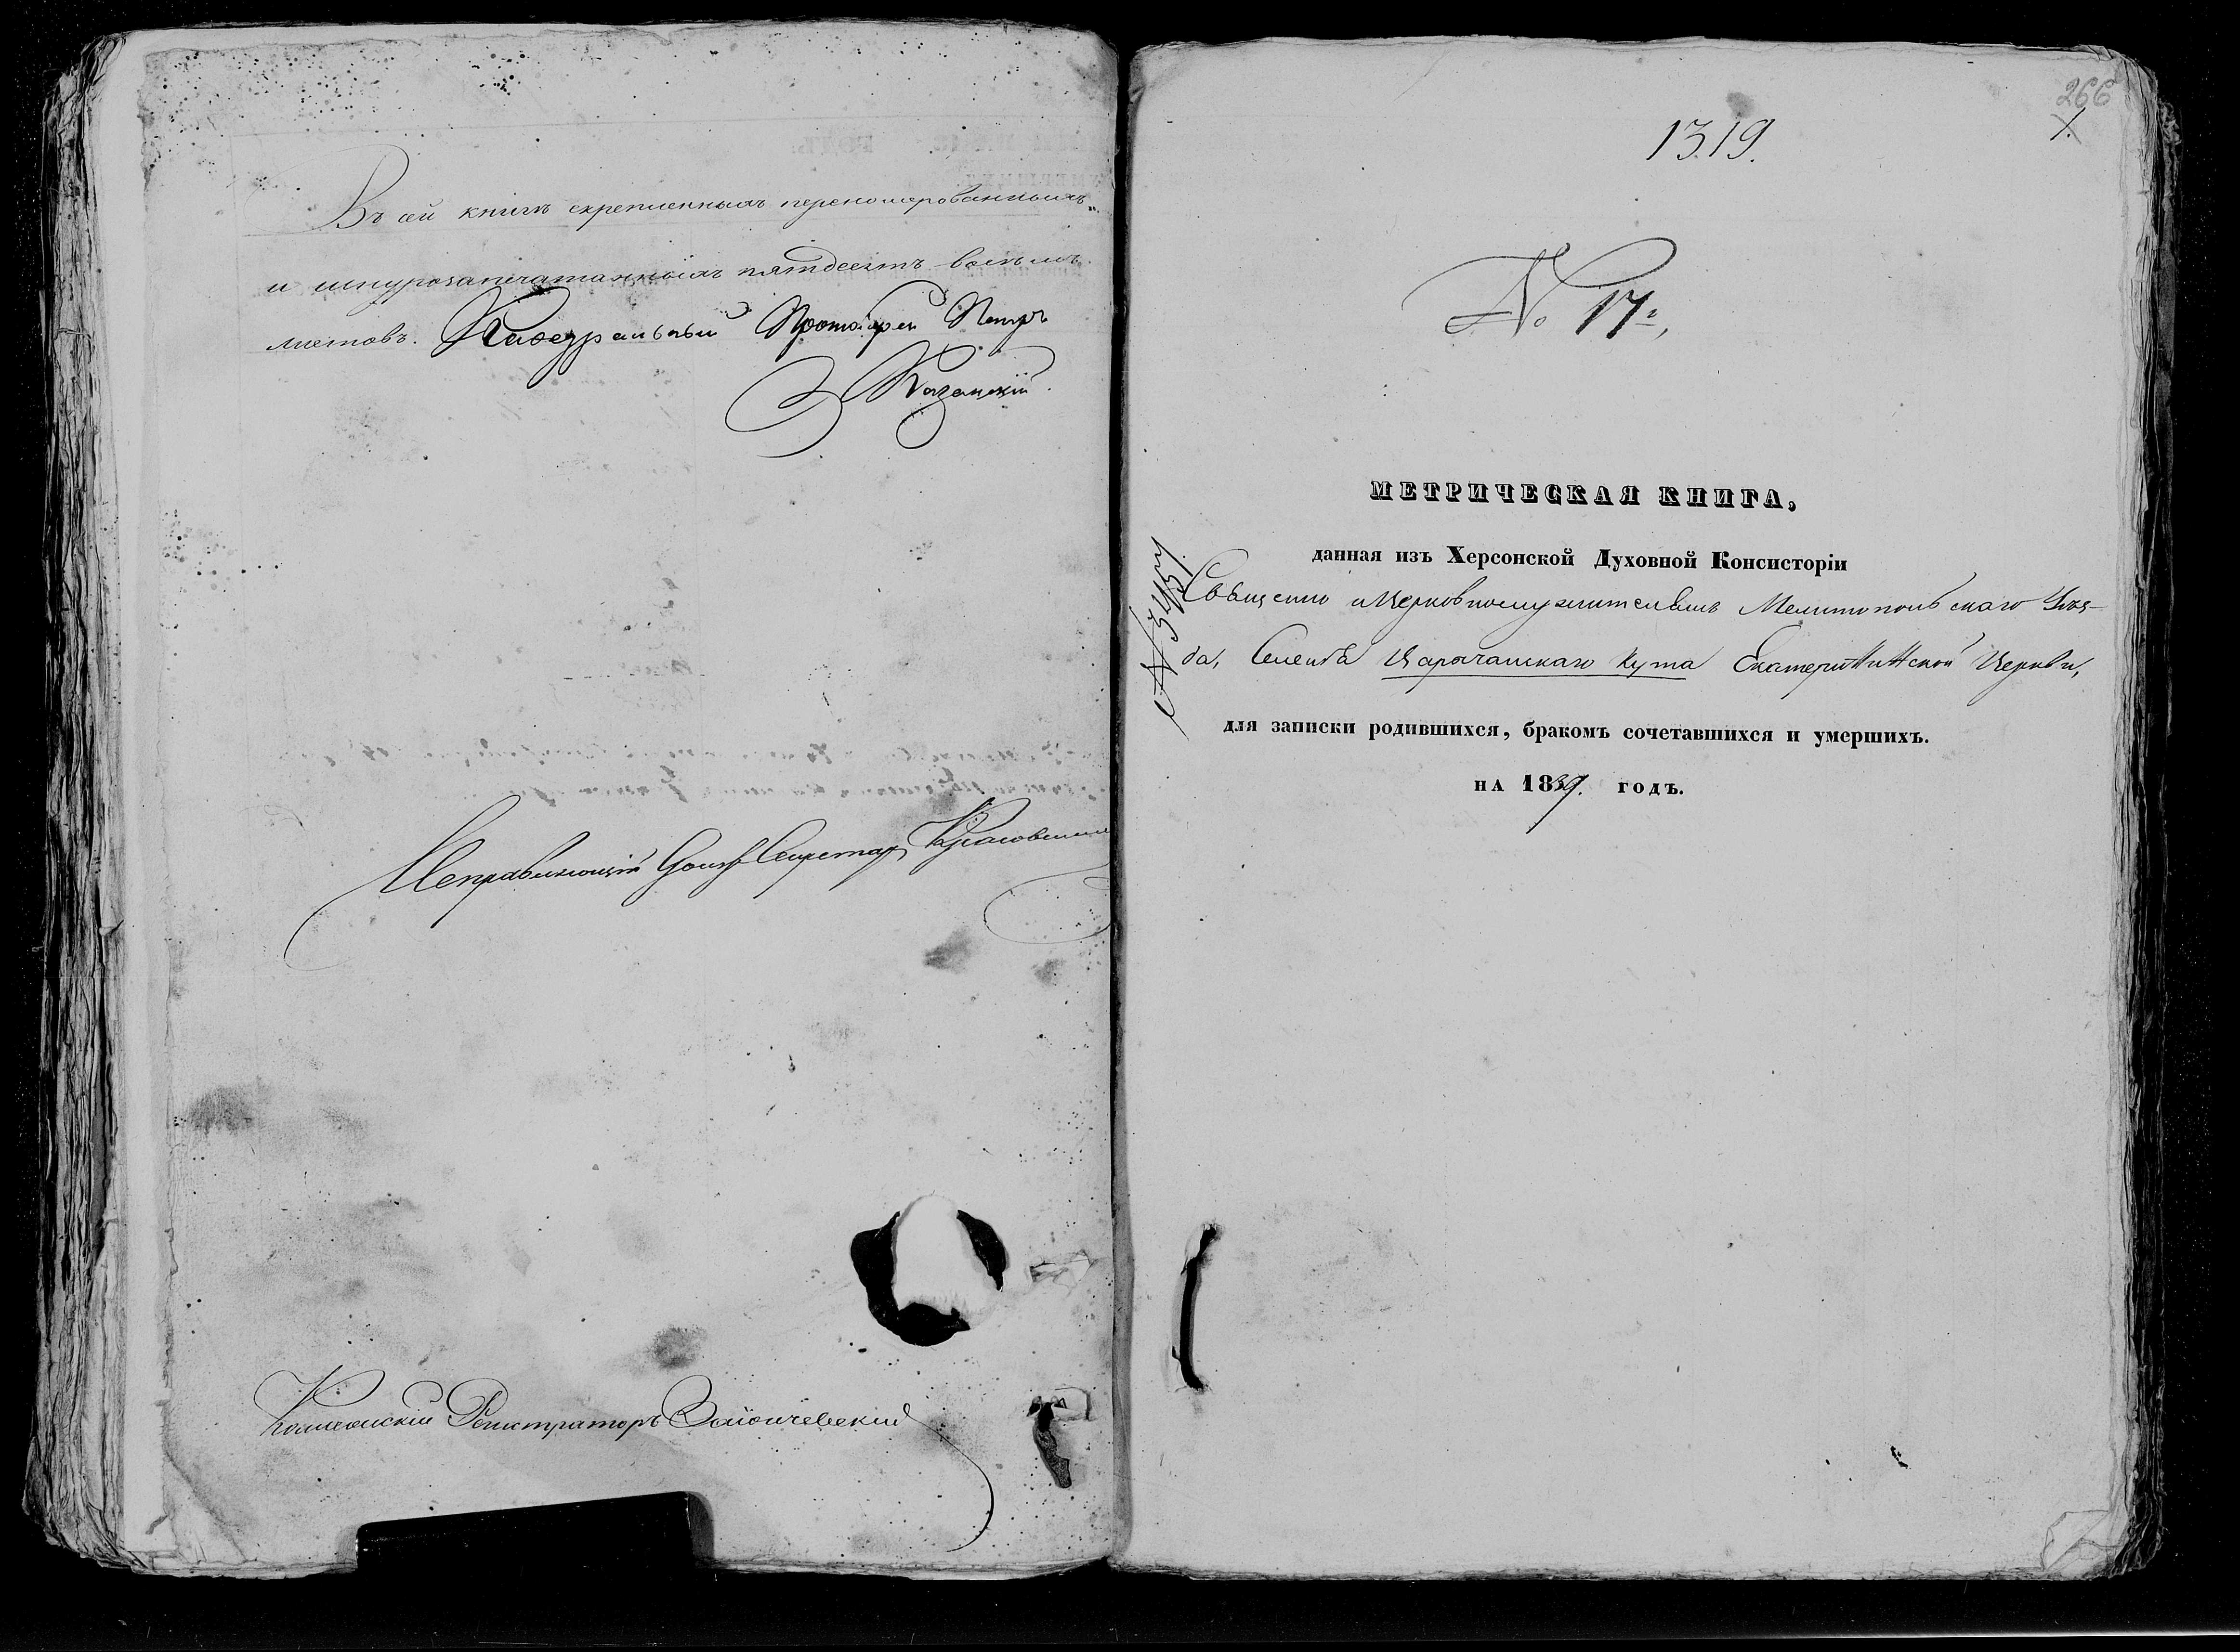 Въ сей книгѣ скрепленныхъ перенумерованныхъ
и шнурозапечатанныхъ пятдесятъ восемь
листовъ. Кафедральный Протоіерей Петръ
Казанскій
Исправляющій Секретаря
Коллежскій Регистраторъ Заіончевскій
266
1.
1319.
№ 17й,
МЕТРИЧЕСКАЯ КНИГА,
данная изъ Херсонской Духовной Консисторіи
Священно и Церковнослужителямъ Мелитопольскаго Уѣз-
да, Селенія Царычанскаго Кута Екатерининской Церкви,
для записки родившихся, бракомъ сочетавшихся и умершихъ.
НА 1839. ГОДЪ.